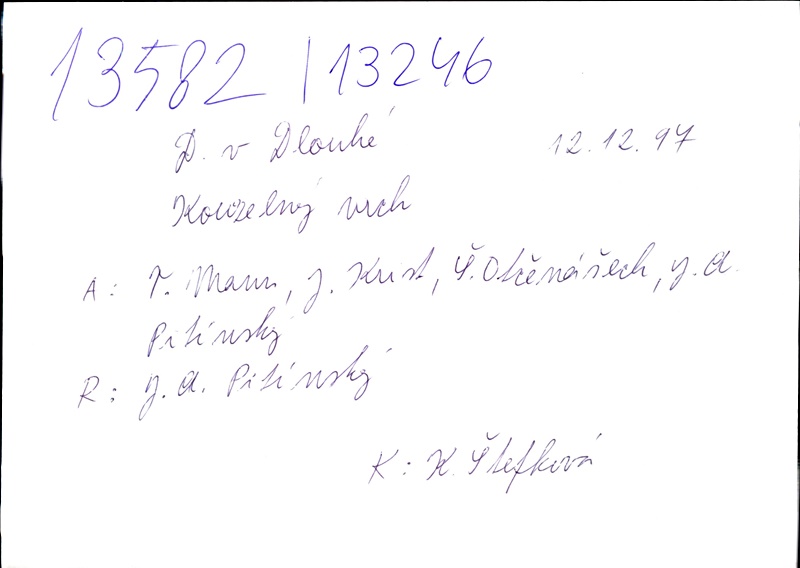 13582 / 13246
D. v Dlouhé 12.12.97
Kouzelný vrch
A: T. Mann, J. Krist, Š. Otčenášech, J. A.
Pitínský
R: J. A. Pitínský
K: K. Štefková